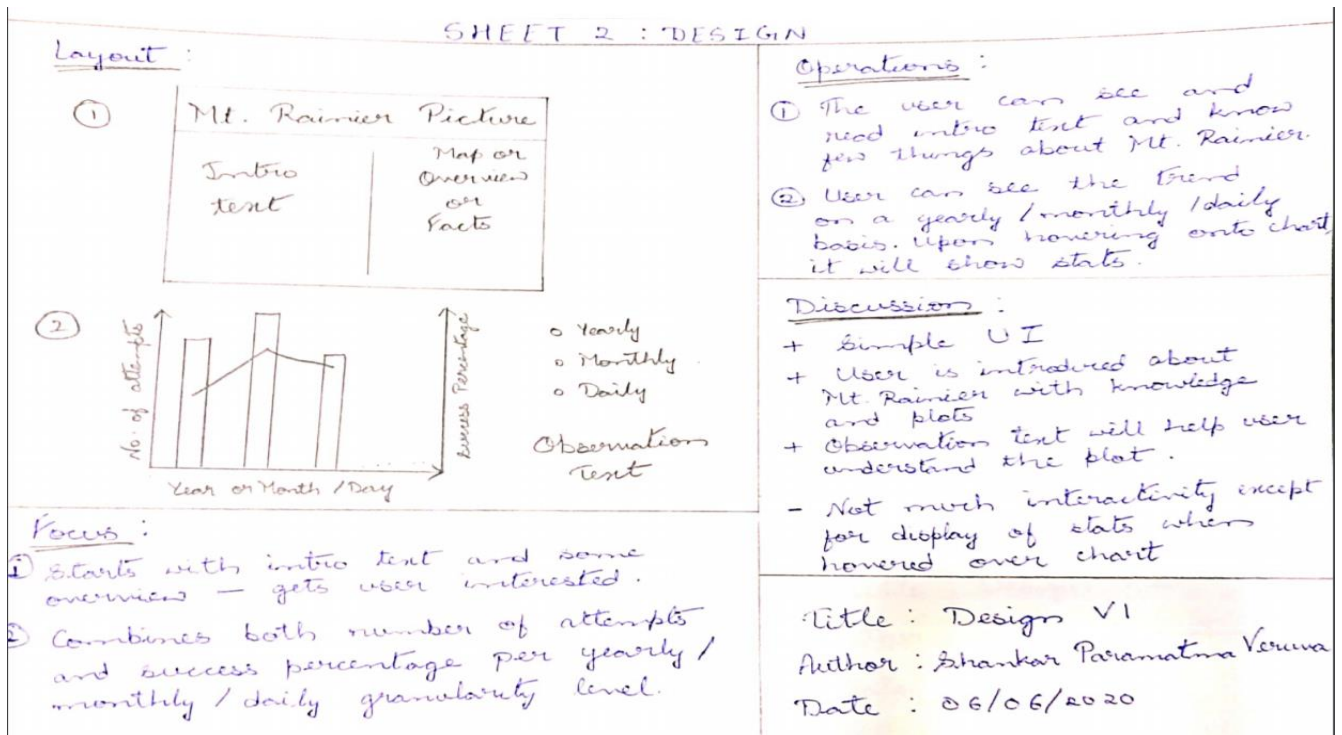 SHEET 2 : DESIGN
Layout :
①
Mt. Rainier Picture
Intro
text
Map or
Overview
or
Facts
②
No. of attempts
Success Percentage
Year or Month / Day
o Yearly
o Monthly
o Daily
Observation
Text
Focus :
① Starts with intro text and some
overview – gets user interested.
② Combines both number of attempts
and success percentage per yearly /
monthly / daily granularity level.
Operations :
① The user can see and
read intro text and know
few things about Mt. Rainier.
② User can see the trend
on a yearly / monthly / daily
basis. Upon hovering onto chart,
it will show stats.
Discussion :
+ Simple UI
+ User is introduced about
Mt. Rainier with knowledge
and plots
+ Observation text will help user
understand the plot.
- Not much interactivity except
for display of stats when
hovered over chart
Title : Design V1
Author : Shankar Paramatma Veruva
Date : 06/06/2020